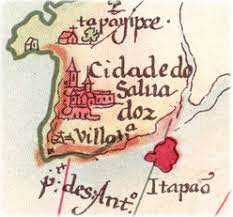 tapagipe
Cidade do
Salua
doz
Villa
pª. des: Antº.
Itapaõ